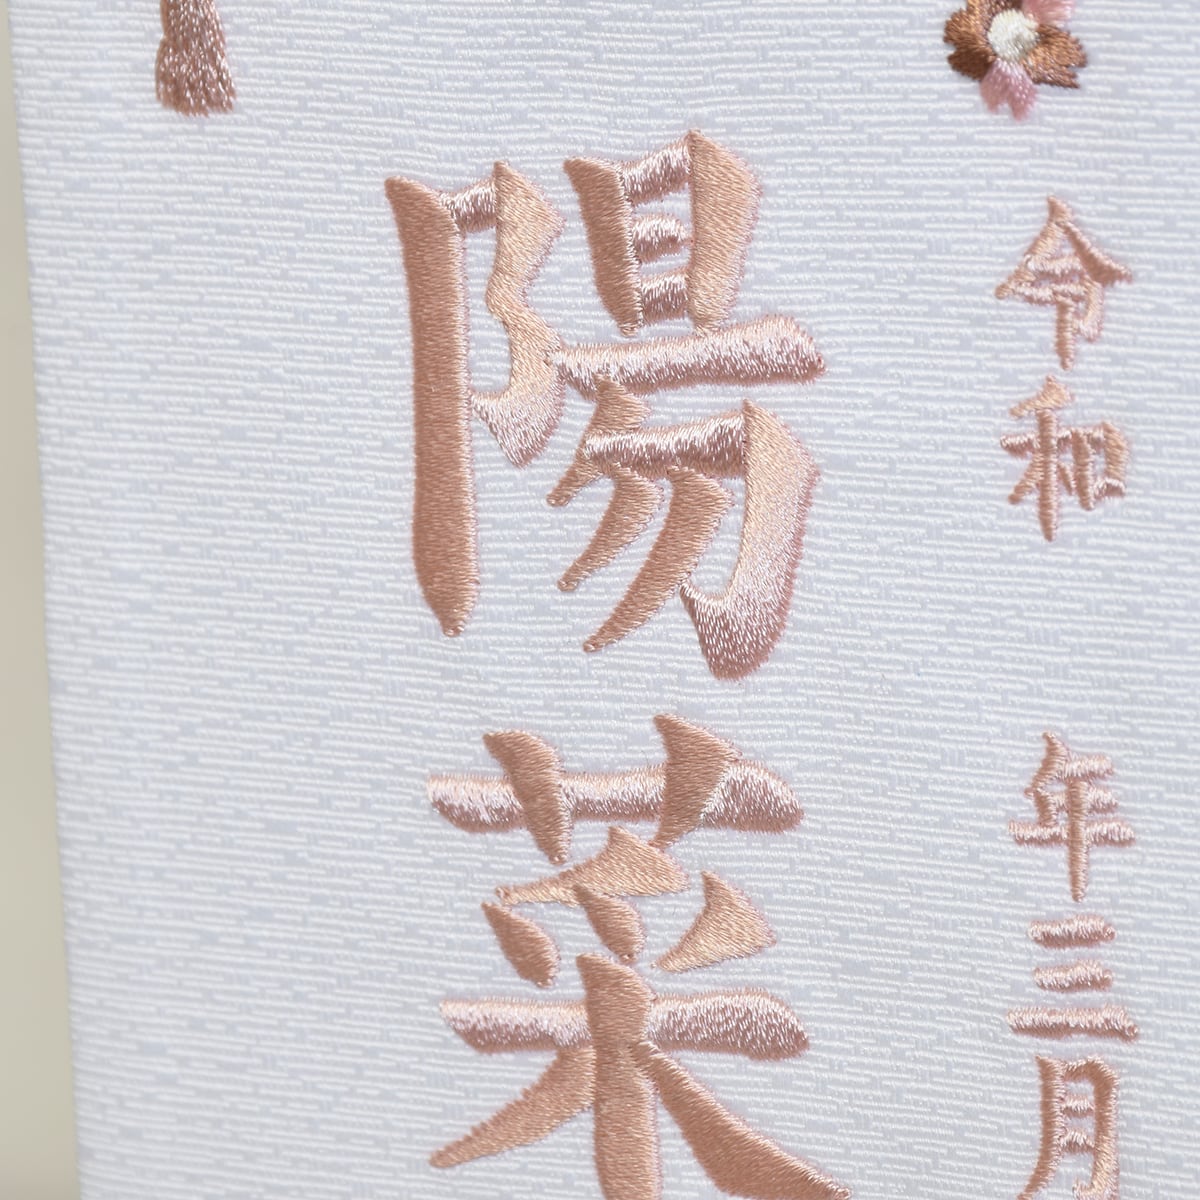 令和 年三月
陽菜